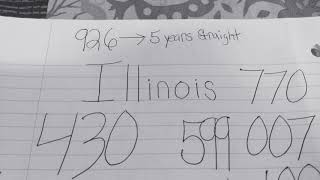 926 → 5 years straight
Illinois 770
430 599 007